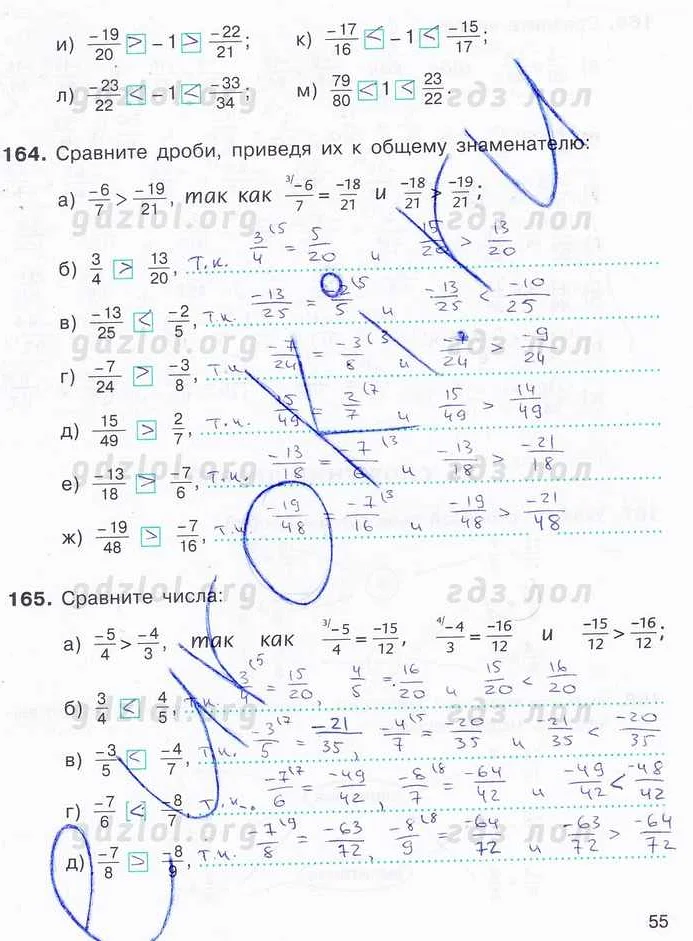 и) -19/20 > -1 > -22/21; к) -17/16 < -1 < -15/17;
л) -23/22 < -1 < -33/34; м) 79/80 < 1 < 23/22.
gdzlol.org гдз лол
164. Сравните дроби, приведя их к общему знаменателю:
а) -6/7 > -19/21, так как 3/ -6/7 = -18/21 и -18/21 > -19/21;
gdzlol.org гдз лол
б) 3/4 > 13/20, т.к. 3/4 (5 = 5/20 и 15/20 > 13/20
в) -13/25 < -2/5, т.к. -13/25 = -2/5 (5 и -13/25 < -10/25
gdzlol.org гдз лол
г) -7/24 > -3/8, т.к. -7/24 = -3/8 (3 и -7/24 > -9/24
д) 15/49 > 2/7, т.к. 15/49 = 2/7 (7 и 15/49 > 14/49
gdzlol.org гдз лол
е) -13/18 > -7/6, т.к. -13/18 = -7/6 (3 и -13/18 > -21/18
ж) -19/48 > -7/16, т.к. -19/48 = -7/16 (3 и -19/48 > -21/48
gdzlol.org гдз лол
165. Сравните числа:
а) -5/4 > -4/3, так как 3/ -5/4 = -15/12, 4/ -4/3 = -16/12 и -15/12 > -16/12;
б) 3/4 < 4/5, т.к. 3/4 (5 = 15/20, 4/5 = 16/20 и 15/20 < 16/20
gdzlol.org гдз лол
в) -3/5 < -4/7, т.к. -3/5 (7 = -21/35, -4/7 (5 = -20/35 и -21/35 < -20/35
г) -7/6 < -8/7, т.к. -7/6 (7 = -49/42, -8/7 (8 = -64/42 и -49/42 < -48/42
gdzlol.org гдз лол
д) -7/8 > -8/9, т.к. -7/8 (9 = -63/72, -8/9 (8 = -64/72 и -63/72 > -64/72
55